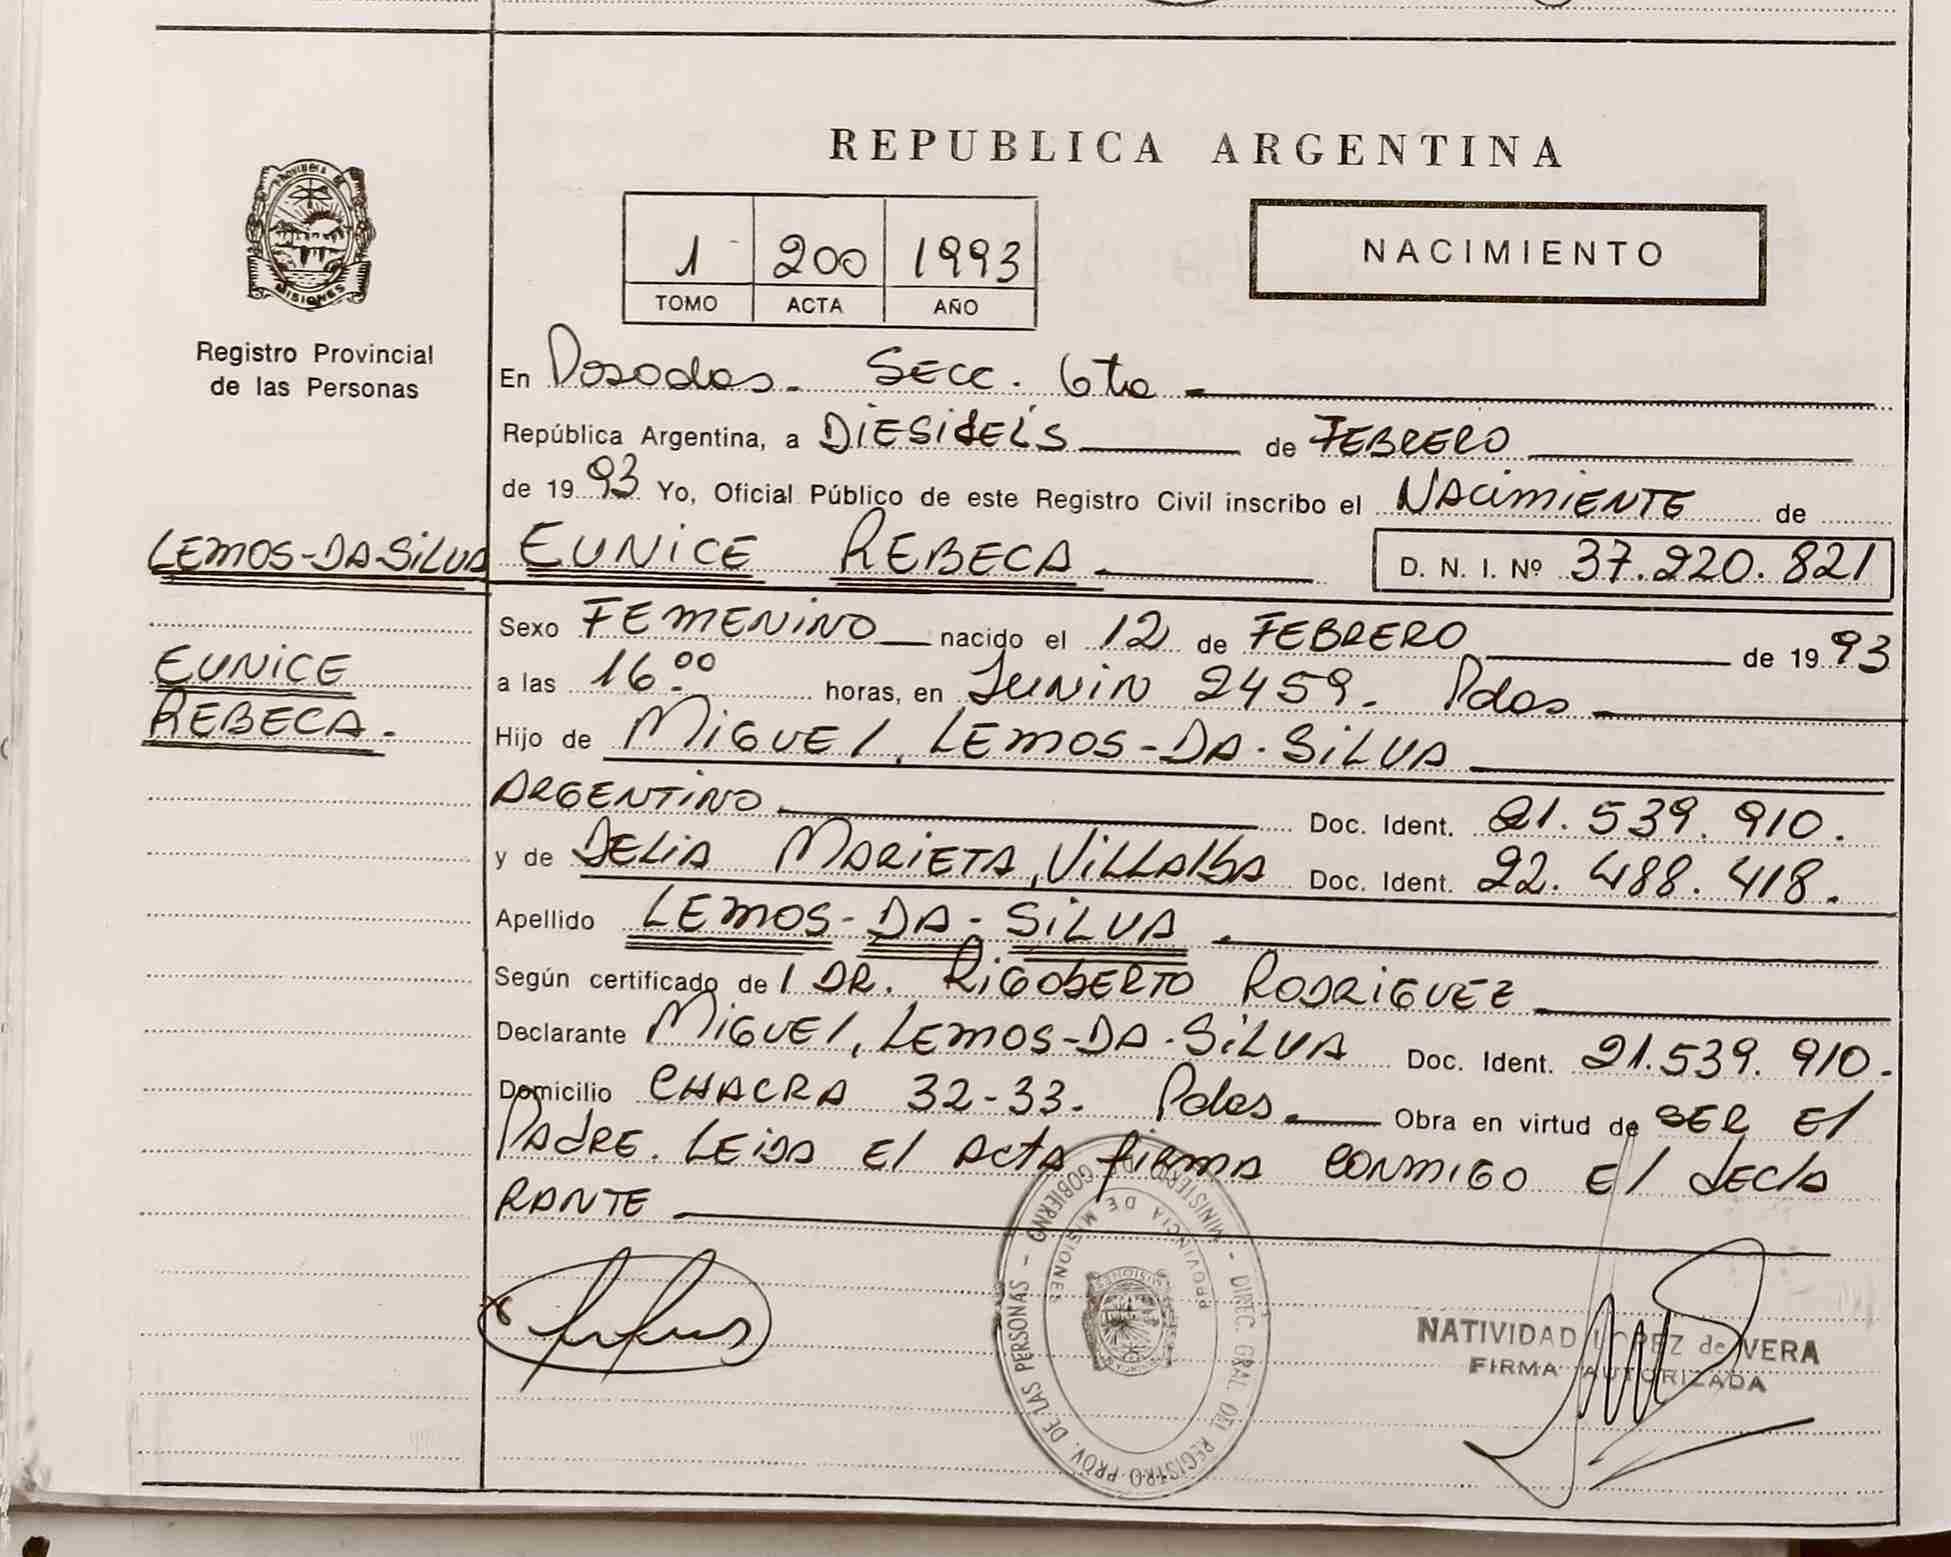 REPUBLICA ARGENTINA
PROVINCIA DE
MISIONES
Registro Provincial
de las Personas
1 200 1993
TOMO ACTA AÑO
NACIMIENTO
En Posadas. Secc. 6ta
República Argentina, a DIESISEIS de FEBRERO
de 1993 Yo, Oficial Público de este Registro Civil inscribo el NACIMIENTE de
LEMOS-DA-SILVA EUNICE REBECA D. N. I. Nº 37.220.821
Sexo FEMENINO nacido el 12 de FEBRERO de 1993
EUNICE
REBECA.
a las 16.00 horas, en JUNIN 2459. Pdas
Hijo de MIGUEL, LEMOS-DA-SILVA
ARGENTINO Doc. Ident. 21.539.910.
y de DELIA MARIETA, VILLALBA Doc. Ident. 22.488.418.
Apellido LEMOS-DA-SILVA.
Según certificado del DR. RIGOBERTO RODRIGUEZ
Declarante MIGUEL, LEMOS-DA-SILVA Doc. Ident. 21.539.910.
Domicilio CHACRA 32-33. Pdas. Obra en virtud de SER El
PADRE. LEIDA El ACTA firma CONMIGO El decla
RANTE
MINISTERIO DE GOBIERNO - DIREC. GRAL. DEL REGISTRO PROV. DE LAS PERSONAS -
PROVINCIA DE MISIONES
NATIVIDAD LOPEZ de VERA
FIRMA AUTORIZADA